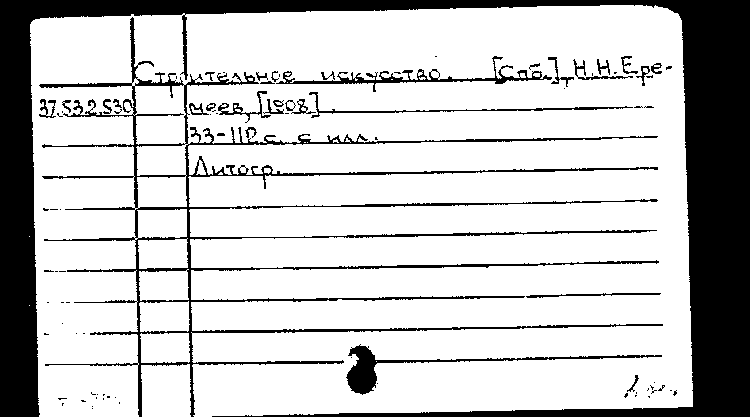 Строительное искусство. [Спб.], Н.Н.Ере-
37.53.2.530 меев, [1908].
33-112 с. с илл.
Литогр.